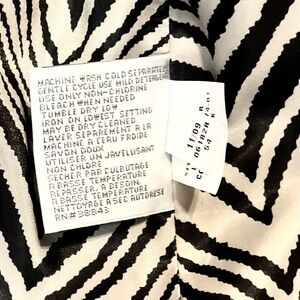 MACHINE WASH COLD SEPARATELY
GENTLE CYCLE USE MILD DETERGENT
USE ONLY NON-CHLORINE
BLEACH WHEN NEEDED
TUMBLE DRY LOW
IRON ON LOWEST SETTING
MAY BE DRYCLEANED
LAVER SEPAREMENT A LA
MACHINE A L'EAU FROIDE
SAVON DOUX
UTILISER UN JAVELLISANT
NON CHLORE
SECHER PAR CULBUTAGE
A BASSE TEMPERATURE
REPASSER, A BESOIN,
A BASSE TEMPERATURE
NETTOYAGE A SEC AUTORISE
RN#38843
11/09